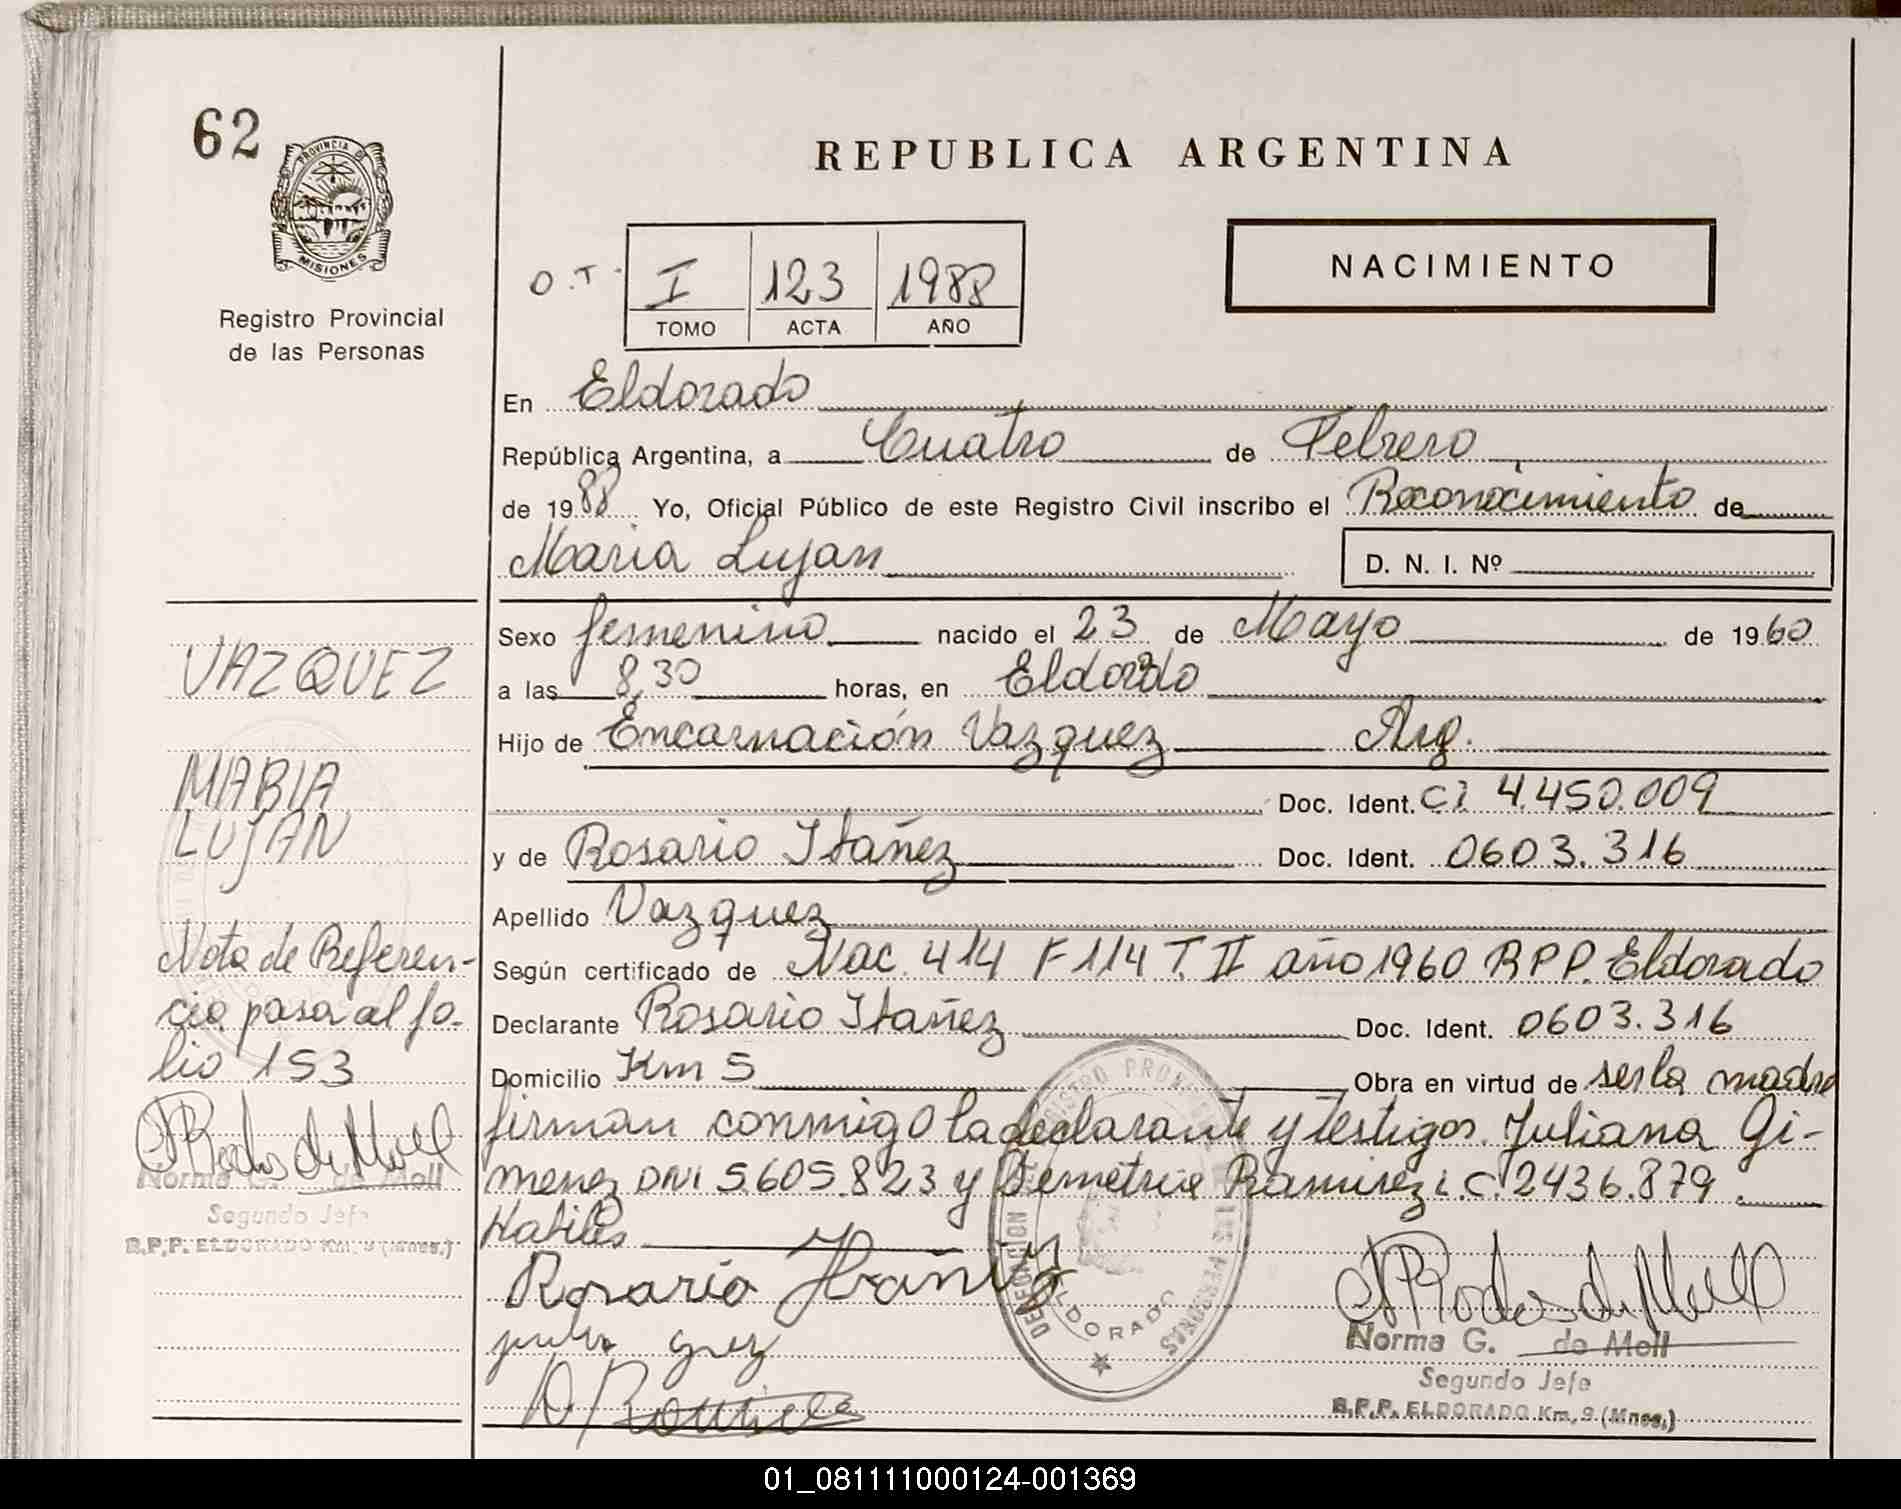 62
PROVINCIA DE
MISIONES
Registro Provincial
de las Personas
REPUBLICA ARGENTINA
NACIMIENTO
O.T. I 123 1988
TOMO ACTA AÑO
En Eldorado
República Argentina, a Cuatro de Febrero
de 1988 Yo, Oficial Público de este Registro Civil inscribo el Reconocimiento de
Maria Lujan D. N. I. Nº
Sexo femenino nacido el 23 de Mayo de 1960
a las 8,30 horas, en Eldorado
Hijo de Encarnación Vazquez Arg.
Doc. Ident. CI 4.450.009
y de Rosario Ibañez Doc. Ident. 0603.316
Apellido Vazquez
Según certificado de Nac. 414 F 114 T. II año 1960 RPP. Eldorado
Declarante Rosario Ibañez Doc. Ident. 0603.316
Domicilio Km 5 Obra en virtud de ser la madre
firman conmigo la declarante y testigos. Juliana Gi-
menez DNI 5.605.823 y Demetrio Ramirez L.C. 2436.879.
Habiles
Rosario Ibañez
Norma G. de Moll
Segundo Jefe
R.P.P. ELDORADO Km. 9 (Mnes.)
DELEGACIÓN REGISTRO PROVINCIAL DE LAS PERSONAS
ELDORADO
VAZQUEZ
MARIA
LUJAN
Nota de Referen-
cia pasa al fo-
lio 153
Norma G. de Moll
Segundo Jefe
R.P.P. ELDORADO Km. 9 (Mnes.)
01_081111000124-001369